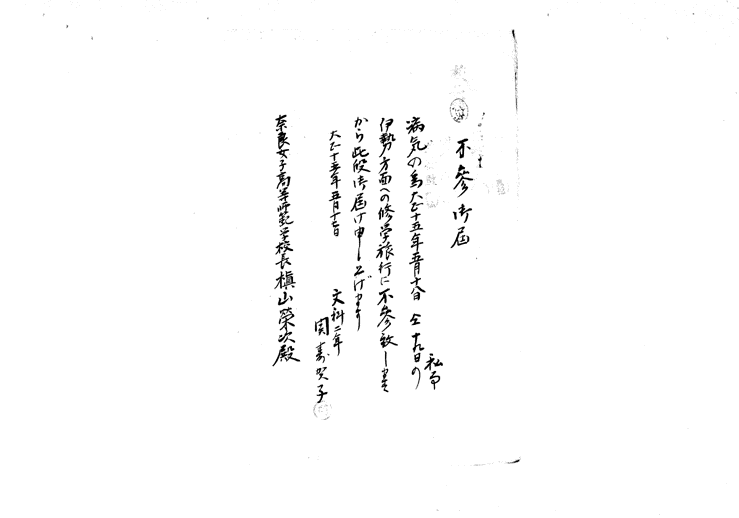 不参御届
私事
病気の為大正十五年五月十八日仝十九日の
伊勢方面への修学旅行に不参致します
から此段御届け申し上げます
大正十五年五月十七日
文科二年
関寿賀子
奈良女子高等師範学校長槇山栄次殿